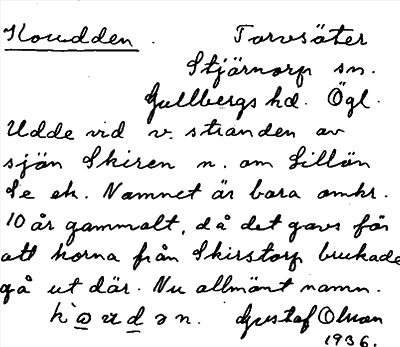 Koudden. Torvsäter
Stjärnorp sn.
Gullbergs hd. Ögl.
Udde vid v. stranden av
sjön Skiren n. om Lillön
Se ek. Namnet är bara omkr.
10 år gammalt, då det gavs för
att korna från Skirstorp brukade
gå ut där. Nu allmänt namn.
Gustaf Olson
1936.